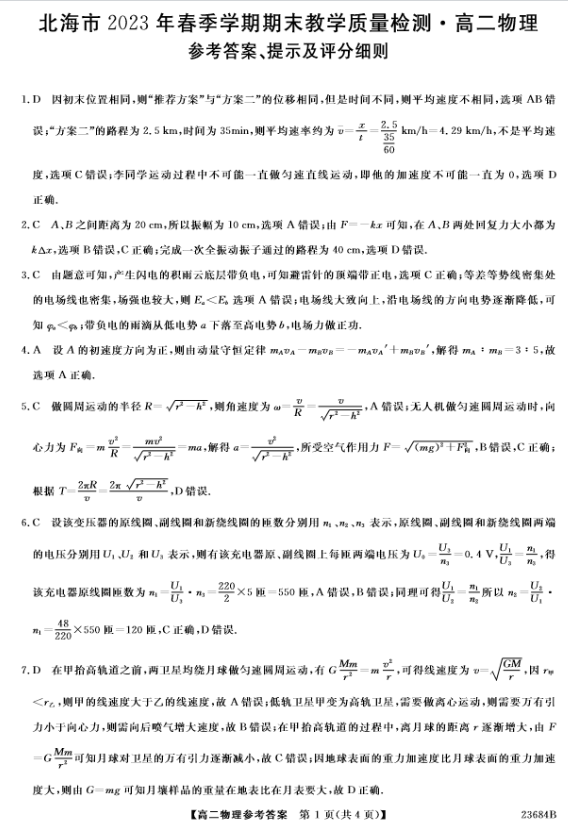 北海市 2023 年春季学期期末教学质量检测·高二物理
参考答案、提示及评分细则
1. D 因初末位置相同,则“推荐方案”与“方案二”的位移相同,但是时间不同,则平均速度不相同,选项 AB 错
误;“方案二”的路程为 2.5 km,时间为 35min,则平均速率约为 v̄=x/t=2.5/(35/60) km/h=4.29 km/h,不是平均速
度,选项 C 错误;李同学运动过程中不可能一直做匀速直线运动,即他的加速度不可能一直为 0,选项 D
正确.
2. C A、B 之间距离为 20 cm,所以振幅为 10 cm,选项 A 错误;由 F=−kx 可知,在 A、B 两处回复力大小都为
kΔx,选项 B 错误,C 正确;完成一次全振动振子通过的路程为 40 cm,选项 D 错误.
3. C 由题意可知,产生闪电的积雨云底层带负电,可知避雷针的顶端带正电,选项 C 正确;等差等势线密集处
的电场线也密集,场强也较大,则 Eₐ<E 选项 A 错误;电场线大致向上,沿电场线的方向电势逐渐降低,可
知 φₐ<φ_b;带负电的雨滴从低电势 a 下落至高电势 b,电场力做正功.
4. A 设 A 的初速度方向为正,则由动量守恒定律 m_Av_A−m_Bv_B=−m_Av_A′+m_Bv_B′,解得 m_A:m_B=3:5,故
选项 A 正确.
5. C 做圆周运动的半径 R=√(r²−h²),则角速度为 ω=v/R=v/√(r²−h²),A 错误;无人机做匀速圆周运动时,向
心力为 F向=m v²/R=mv²/√(r²−h²)=ma,解得 a=v²/√(r²−h²),所受空气作用力 F=√((mg)²+F向²),B 错误,C 正确;
根据 T=2πR/v=2π√(r²−h²)/v,D 错误.
6. C 设该变压器的原线圈、副线圈和新绕线圈的匝数分别用 n₁、n₂、n₃ 表示,原线圈、副线圈和新绕线圈两端
的电压分别用 U₁、U₂ 和 U₃ 表示,则有该充电器原、副线圈上每匝两端电压为 U₀=U₃/n₃=0.4 V,U₁/U₃=n₁/n₃,得
该充电器原线圈匝数为 n₁=U₁/U₃·n₃=220/2×5 匝=550 匝,A 错误,B 错误;同理可得U₁/U₂=n₁/n₂所以 n₂=U₂/U₁·
n₁=48/220×550 匝=120 匝,C 正确,D 错误.
7. D 在甲抬高轨道之前,两卫星均绕月球做匀速圆周运动,有 G Mm/r²=m v²/r,可得线速度为 v=√(GM/r),因 r甲
<r乙,则甲的线速度大于乙的线速度,故 A 错误;低轨卫星甲变为高轨卫星,需要做离心运动,则需要万有引
力小于向心力,则需向后喷气增大速度,故 B 错误;在甲抬高轨道的过程中,离月球的距离 r 逐渐增大,由 F
=G Mm/r² 可知月球对卫星的万有引力逐渐减小,故 C 错误;因地球表面的重力加速度比月球表面的重力加速
度大,则由 G=mg 可知月壤样品的重量在地表比在月表要大,故 D 正确.
【高二物理参考答案 第 1 页(共 4 页)】 23684B